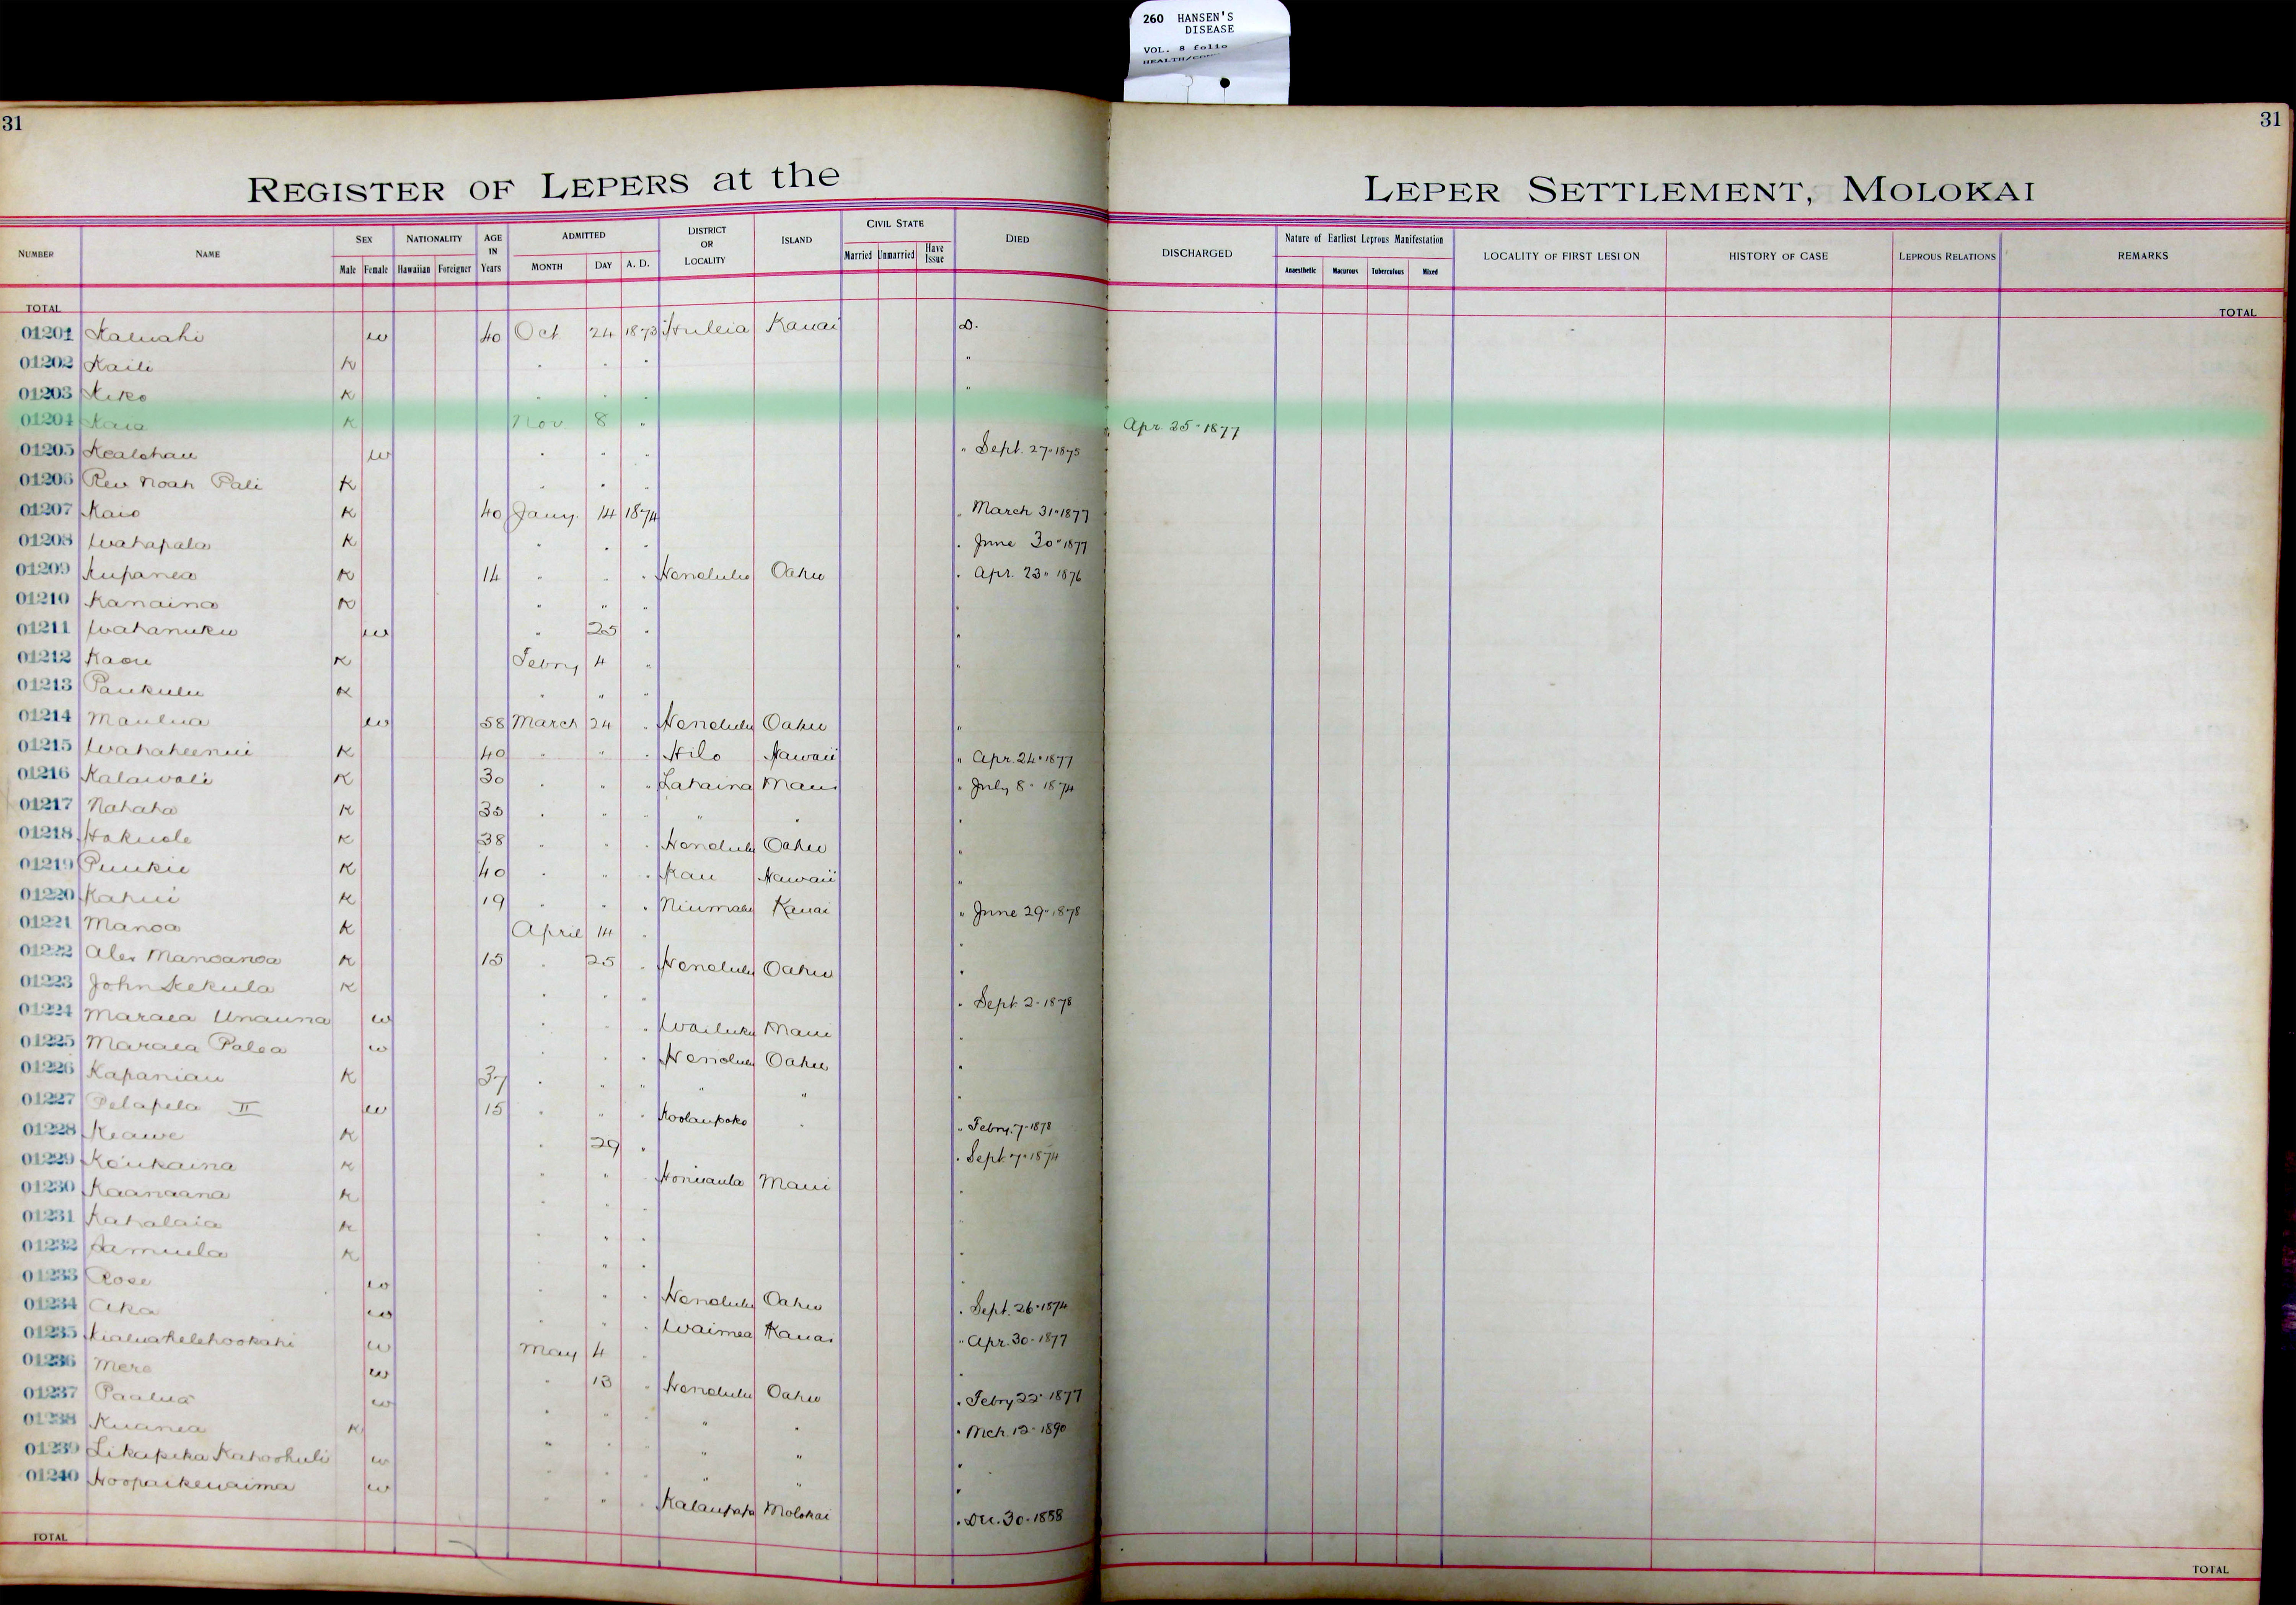 260 HANSEN'S
DISEASE
VOL. 8 folio
31
31
REGISTER OF LEPERS at the
LEPER SETTLEMENT, MOLOKAI
NUMBER NAME SEX NATIONALITY AGE IN Years ADMITTED DISTRICT OR LOCALITY ISLAND CIVIL STATE DIED DISCHARGED Nature of Earliest Leprous Manifestation LOCALITY OF FIRST LESION HISTORY OF CASE LEPROUS RELATIONS REMARKS
Male Female Hawaiian Foreigner MONTH DAY A. D. Married Unmarried Have Issue Anaesthetic Macurous Tuberculous Mixed
TOTAL TOTAL
01201 Kaluahi w 40 Oct 24 1873 Huleia Kauai D.
01202 Kaili K " " " "
01203 Keko K " " " "
01204 Kaia K Nov 8 " " Apr. 25" 1877
01205 Kealohau w " " " " Sept. 27" 1875
01206 Rev Noah Pali K " " "
01207 Kaio K 40 Jany. 14 1874 " March 31" 1877
01208 Wahapala K " " " " June 30" 1877
01209 Kupanea K 14 " " " Honolulu Oahu " Apr. 23" 1876
01210 Kanaina K " " " "
01211 Wahanuku w " 25 " "
01212 Kaou K Febry 4 " "
01213 Paukulu K " " "
01214 Maulua w 58 March 24 " Honolulu Oahu "
01215 Wahaheenui K 40 " " " Hilo Hawaii " Apr. 24" 1877
01216 Kalawali K 30 " " " Lahaina Maui " July 8" 1874
01217 Nahaha K 35 " " " " " "
01218 Hokuole K 38 " " " Honolulu Oahu "
01219 Puukii K 40 " " " Kau Hawaii "
01220 Kahui K 19 " " " Niumalu Kauai " June 29" 1878
01221 Manoa K April 14 " "
01222 Alex Manoanoa K 15 " 25 " Honolulu Oahu "
01223 John Kekula K " " " " Sept. 2" 1878
01224 Maraea Unauna w " " " Wailuku Maui "
01225 Maraea Palea w " " " Honolulu Oahu "
01226 Kapaniau K 37 " " " " " "
01227 Pelapela II w 15 " " " Koolaupoko " " Febry. 7" 1878
01228 Keawe K " 29 " " Sept. 7" 1874
01229 Koukaina K " " " Honuaula Maui "
01230 Kaanaana K " " "
01231 Kahalaia K " " " "
01232 Samuela K " " " "
01233 Rose w " " " Honolulu Oahu " Sept. 26" 1874
01234 Aka w " " " Waimea Kauai " Apr. 30" 1877
01235 Kialuahelehookahi w May 4 " "
01236 Mere w " 13 " Honolulu Oahu " Febry 22" 1877
01237 Paalua w " " " " " " Mch. 12" 1890
01238 Kuanea K " " " " " "
01239 Likapeka Kahoohuli w " " " " " "
01240 Hoopaikewaima w " " " Kalaupapa Molokai " Dec. 30" 1888
TOTAL TOTAL